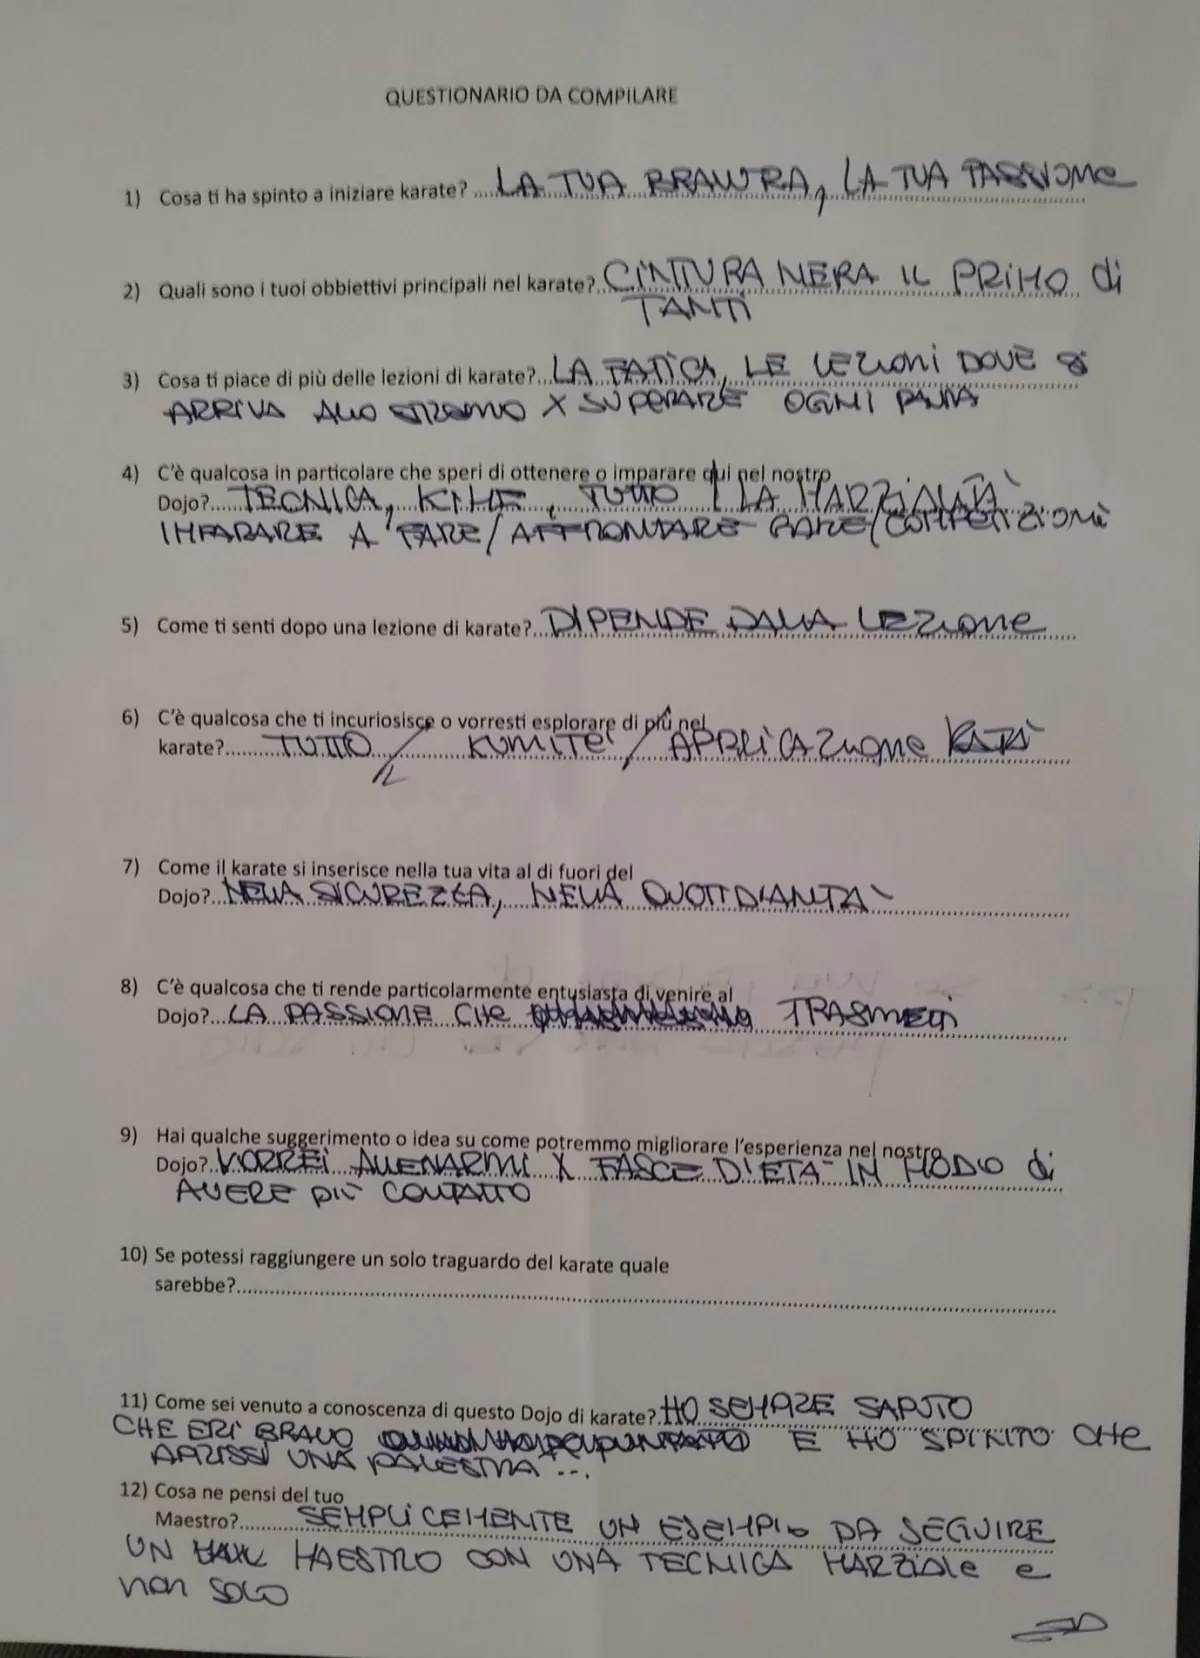 QUESTIONARIO DA COMPILARE
1) Cosa ti ha spinto a iniziare karate? ..... LA TUA BRAVURA, LA TUA PASSIONE
2) Quali sono i tuoi obbiettivi principali nel karate?.. CINTURA NERA IL PRIMO di
TANTI
3) Cosa ti piace di più delle lezioni di karate?... LA FATICA, LE LEZIONI DOVE SI
ARRIVA ALLO STREMO X SUPERARE OGNI PAURA
4) C'è qualcosa in particolare che speri di ottenere o imparare qui nel nostro
Dojo?...... TECNICA, KIME, TUTTO LA MARZIALITÀ
IMPARARE A FARE/AFFRONTARE GARE/COMPETIZIONI
5) Come ti senti dopo una lezione di karate?... DIPENDE DALLA LEZIONE
6) C'è qualcosa che ti incuriosisce o vorresti esplorare di più nel
karate?....... TUTTO / KUMITE / APPLICAZIONE KATA
7) Come il karate si inserisce nella tua vita al di fuori del
Dojo?... NELLA SICUREZZA, NELLA QUOTIDIANITÀ
8) C'è qualcosa che ti rende particolarmente entusiasta di venire al
Dojo?... LA PASSIONE CHE TRASMETTI
9) Hai qualche suggerimento o idea su come potremmo migliorare l'esperienza nel nostro
Dojo?.. VORREI ALLENARMI X FASCE D'ETÀ IN MODO di
AVERE PIÙ CONTATTO
10) Se potessi raggiungere un solo traguardo del karate quale
sarebbe?......
11) Come sei venuto a conoscenza di questo Dojo di karate?. HO SEMPRE SAPUTO
CHE ERI BRAVO E HO CHE
APRISSI UNA PALESTRA ...
12) Cosa ne pensi del tuo
Maestro?......... SEMPLICEMENTE UN ESEMPIO DA SEGUIRE
UN MAESTRO CON UNA TECNICA MARZIALE e
non SOLO